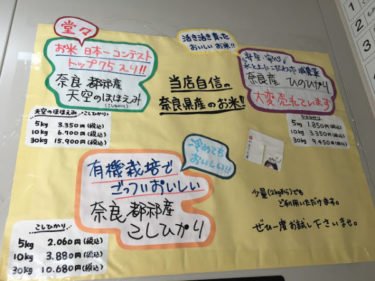 堂々
お米 日本一コンテスト
トップ25入り!!
奈良 都祁産
天空のほほえみ
天空のほほえみ(こしひかり)
5kg 3.350円(税込)
10kg 6.900円(税込)
30kg 15.900円(税込)
活き活き育った
おいしいお米!!
当店自信の
奈良県産のお米!!
奈良産 ひのひかり
大変売れています
5kg 1.850円(税込)
10kg 3.350円(税込)
30kg 9.450円(税込)
冷めても
おいしい!!
有機栽培で
ごっついおいしい
奈良 都祁産
こしひかり
こしひかり
5kg 2.060円(税込)
10kg 3.880円(税込)
30kg 10.680円(税込)
少量(2kgから)でも
ご利用いただけます。
ぜひ一度お試し下さいませ。